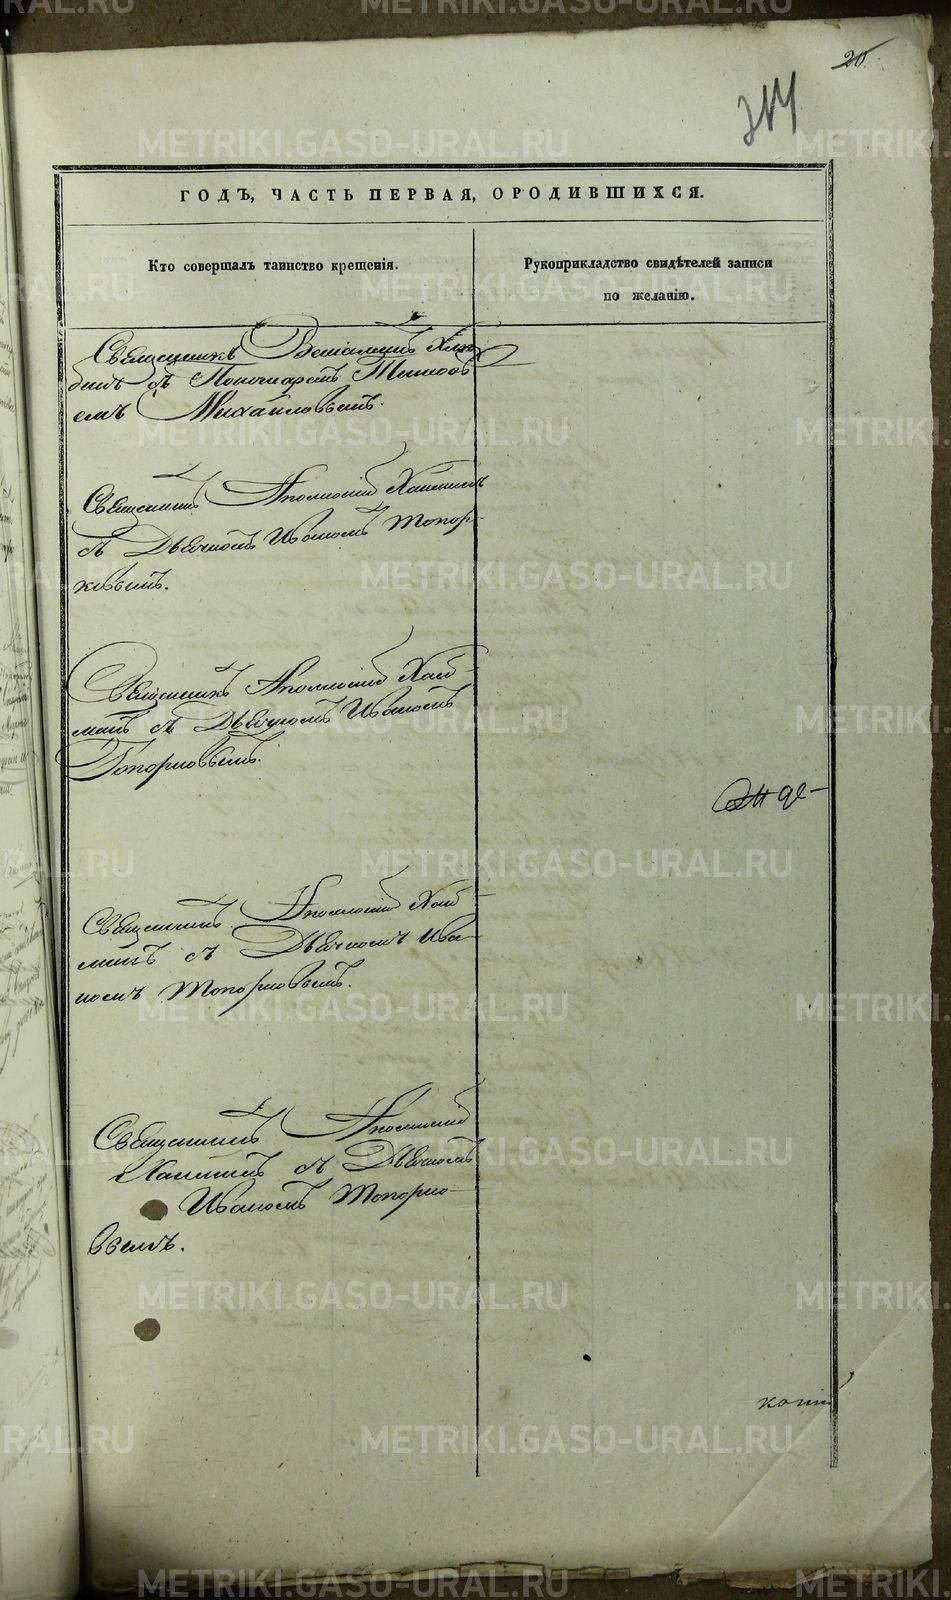 20
314
ГОДЪ, ЧАСТЬ ПЕРВАЯ, О РОДИВШИХСЯ.
Кто совершалъ таинство крещенія.
Рукоприкладство свидѣтелей записи
по желанію.
Священникъ Веніаминъ
съ Пономаремъ
емъ Михайловымъ.
Священникъ Аполлоній
съ Дьячкомъ Иваномъ Топор-
ковымъ.
Священникъ Аполлоній
съ Дьячкомъ Иваномъ
Топорковымъ.
Священникъ Аполлоній
съ Дьячкомъ Ива-
номъ Топорковымъ.
Священникъ Аполлоній
съ Дьячкомъ
Иваномъ Топорко-
вымъ.
METRIKI.GASO-URAL.RU